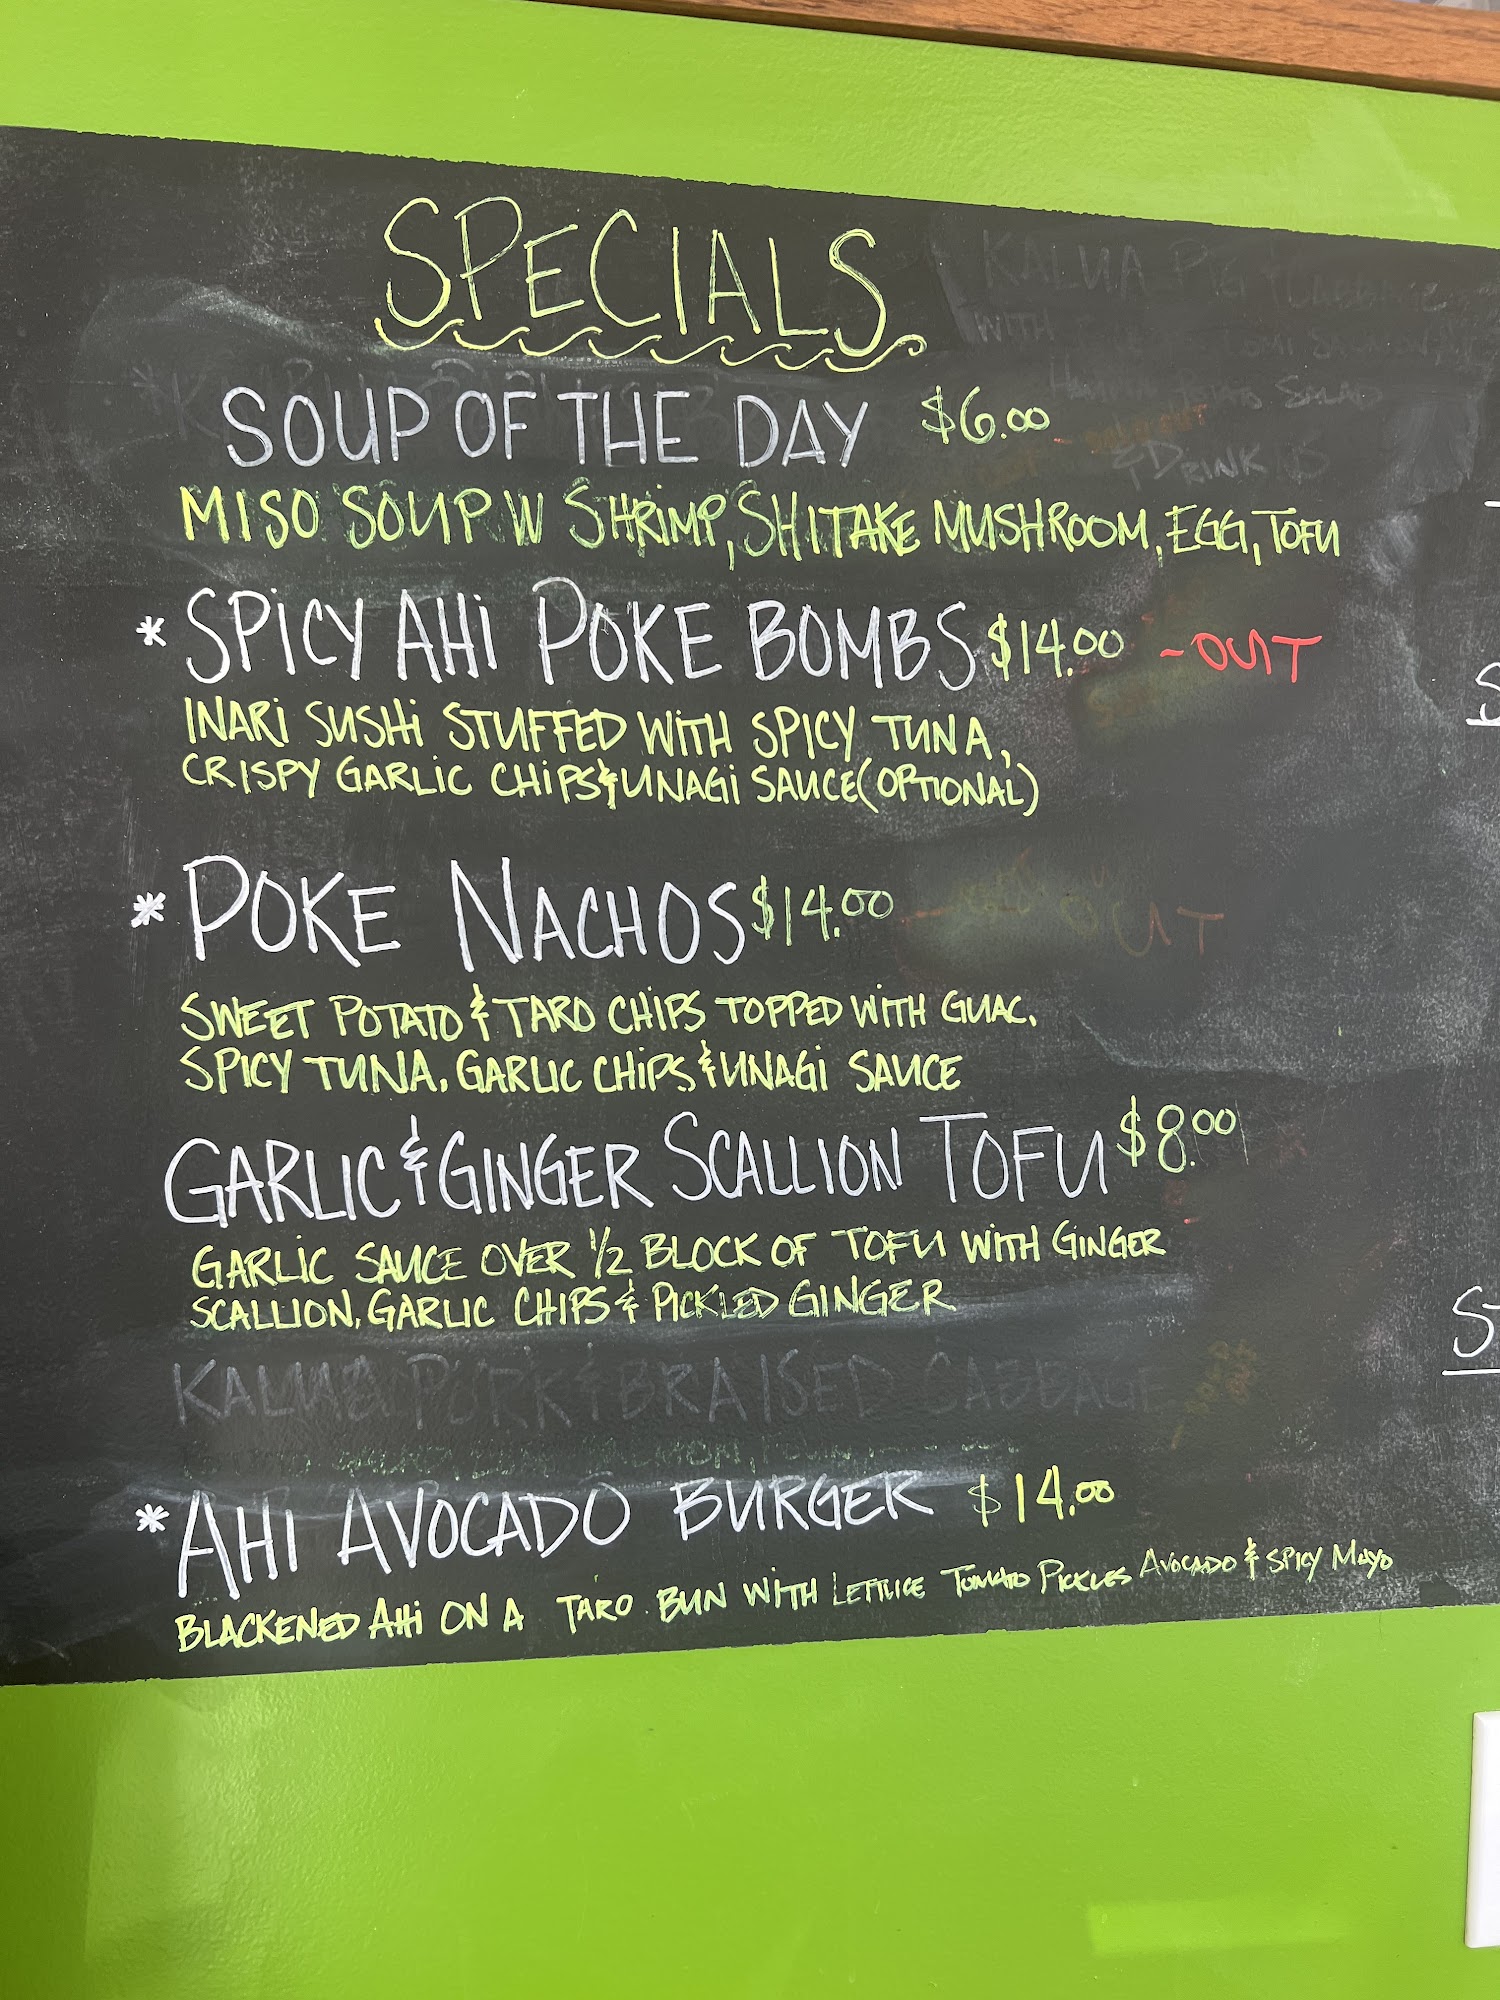 SPECIALS
SOUP OF THE DAY $6.00
MISO SOUP W SHRIMP, SHITAKE MUSHROOM, EGG, TOFU
* SPICY AHI POKE BOMBS $14.00 - OUT
INARI SUSHI STUFFED WITH SPICY TUNA,
CRISPY GARLIC CHIPS & UNAGI SAUCE (OPTIONAL)
* POKE NACHOS $14.00 OUT
SWEET POTATO & TARO CHIPS TOPPED WITH GUAC,
SPICY TUNA, GARLIC CHIPS & UNAGI SAUCE
GARLIC & GINGER SCALLION TOFU $8.00
GARLIC SAUCE OVER 1/2 BLOCK OF TOFU WITH GINGER
SCALLION, GARLIC CHIPS & PICKLED GINGER
KALUA PORK & BRAISED CABBAGE
* AHI AVOCADO BURGER $14.00
BLACKENED AHI ON A TARO BUN WITH LETTUCE TOMATO PICKLES AVOCADO & SPICY MAYO
KALUA PIG
WITH
& DRINK